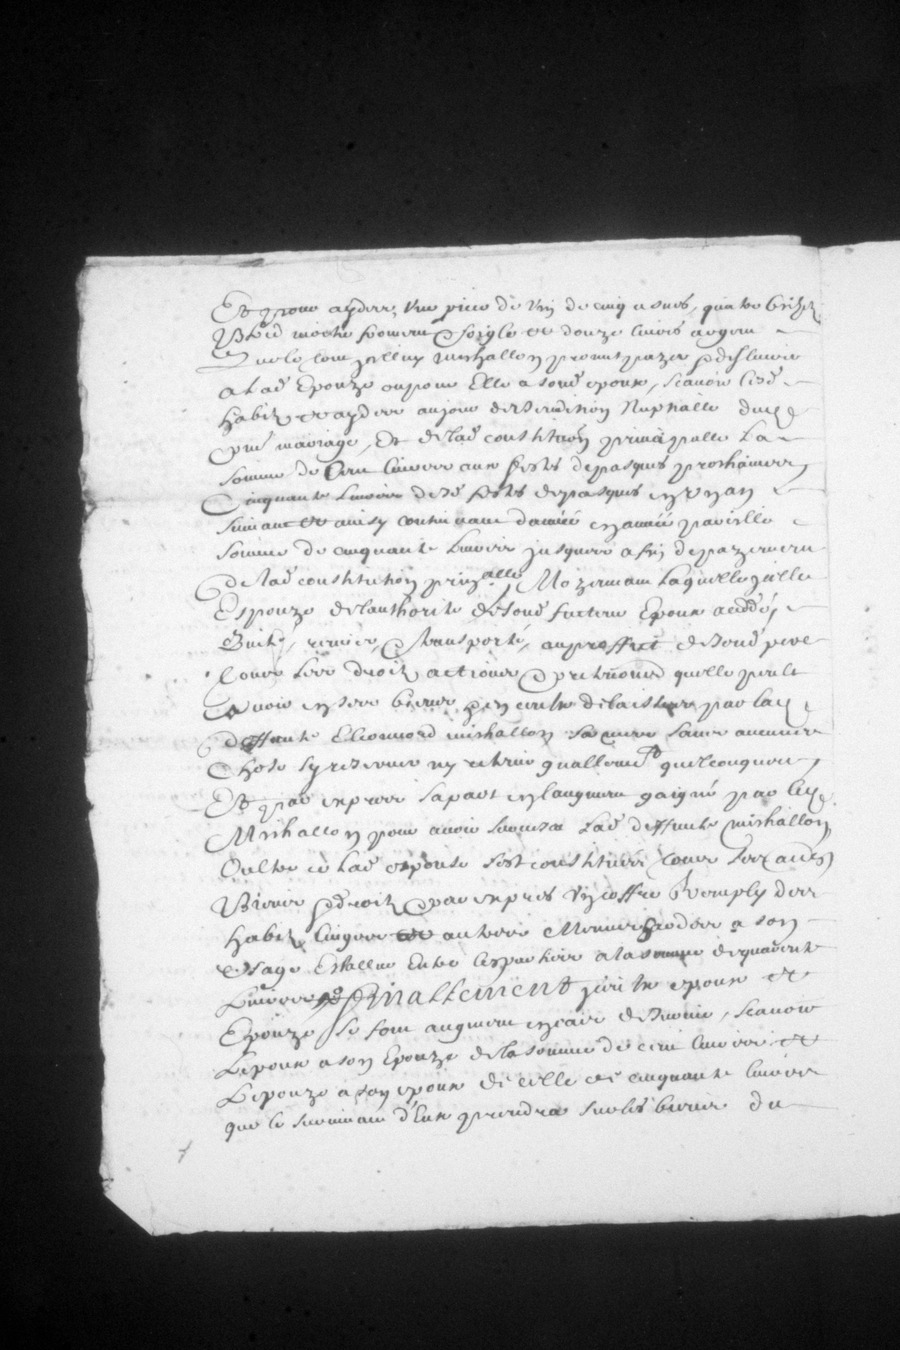 Et pour aydere, Une piece de vin de cinq asnés, quatre bichez
Bled moitie froment & soigle et douze livres argent
Quele sieur Mishallon promet payer & deslivrer
a lad Epouze ou pour Elle a sond epoux, scavoir lesd
habitz et aydere au jour de benediction Nuptialle dud
pnt mariage, Et de lad constitution principalle La
somme de Cent livres aux festes de pasques prochaines
Cinquante Livres desd festes de pasques en un an
suivant et ainsy continuant d'année en année pareille
somme de cinquante Livres jusques a fin de payement
de lad constitution prin alle, Moyennant Laquelle
Espouze de l'authorité de sond futeur Epoux a cedde,
quitte, remis, & transporté, au proffict de sond pere
tous ses droitz actions & pretentions quelle peult
avoir en ses biens & en ceux delaisses par lad
deffunte Eleonord mishallon sa mere sans aucune
Chose sy reserver ny retenir quallement quelconque
Et par expres sa part en l'augment gaigné par led
Mishallon pour avoir survescu Lad deffunte mishallon
Oultre ce Lad espouse sest constituée tous ses aultres
Biens & droitz & par expres Un coffre Remply des
habitz linges et aultres Menues hardes a son
Usage Estallué Entre les parties a la somme de quarente
Livres Finallement lesdits epoux et
Epouze se font augment en cas de survie, scavoir
L'epoux a son Epouze de la somme de cent livres et
L'epouze a son epoux de celle de cinquante livres
que le survivant d'Eux prendra sur les biens du